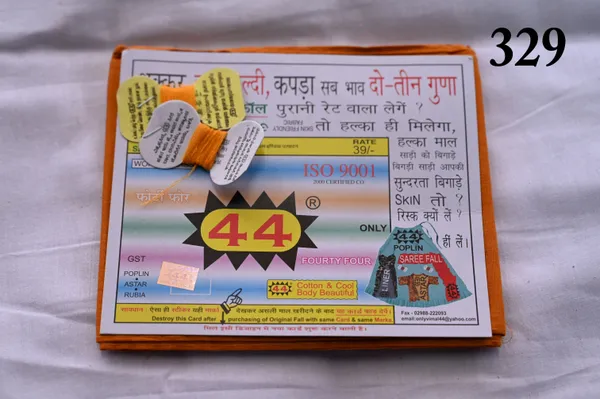 329
शक्कर, हल्दी, कपड़ा सब भाव दो-तीन गुणा
फॉल पुरानी रेट वाला लेगें ?
SKIN FRIENDLY FABRIC
तो हल्का ही मिलेगा,
हल्का माल
साड़ी को बिगाड़े
बिगड़ी साड़ी आपकी
सुन्दरता बिगाड़े
SKIN तो ?
रिस्क क्यों लें ?
हीं लें।
RATE
39/-
ISO 9001
2009 CERTIFIED CO.
फाटां फोर
44 ®
ONLY
FOURTY FOUR
GST
POPLIN
• ASTAR
• RUBIA
44
44 Cotton & Cool
Body Beautiful
44
POPLIN
SAREE FALL
LINER
सावधान : ऐसा ही स्टीकर सही मार्का देखकर असली माल खरीदने के बाद यह कार्ड फाड़ देवें।
Destroy this Card after purchasing of Original Fall with same Card & same Marka
Fax : 02988-222093
email:onlyvimal44@yahoo.com